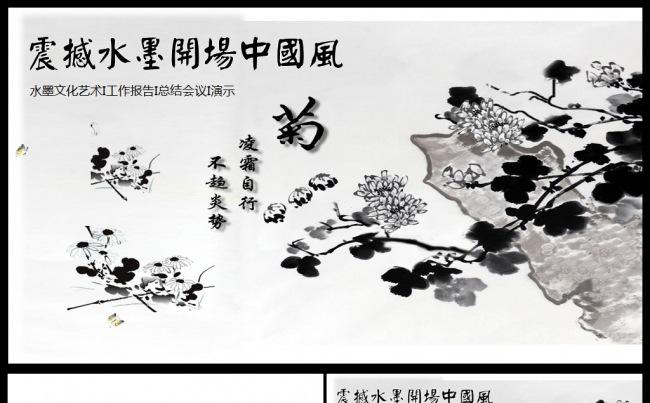 震撼水墨開場中國風
水墨文化艺术I工作报告I总结会议I演示
菊
凌霜自行
不趋炎势
震撼水墨開場中國風